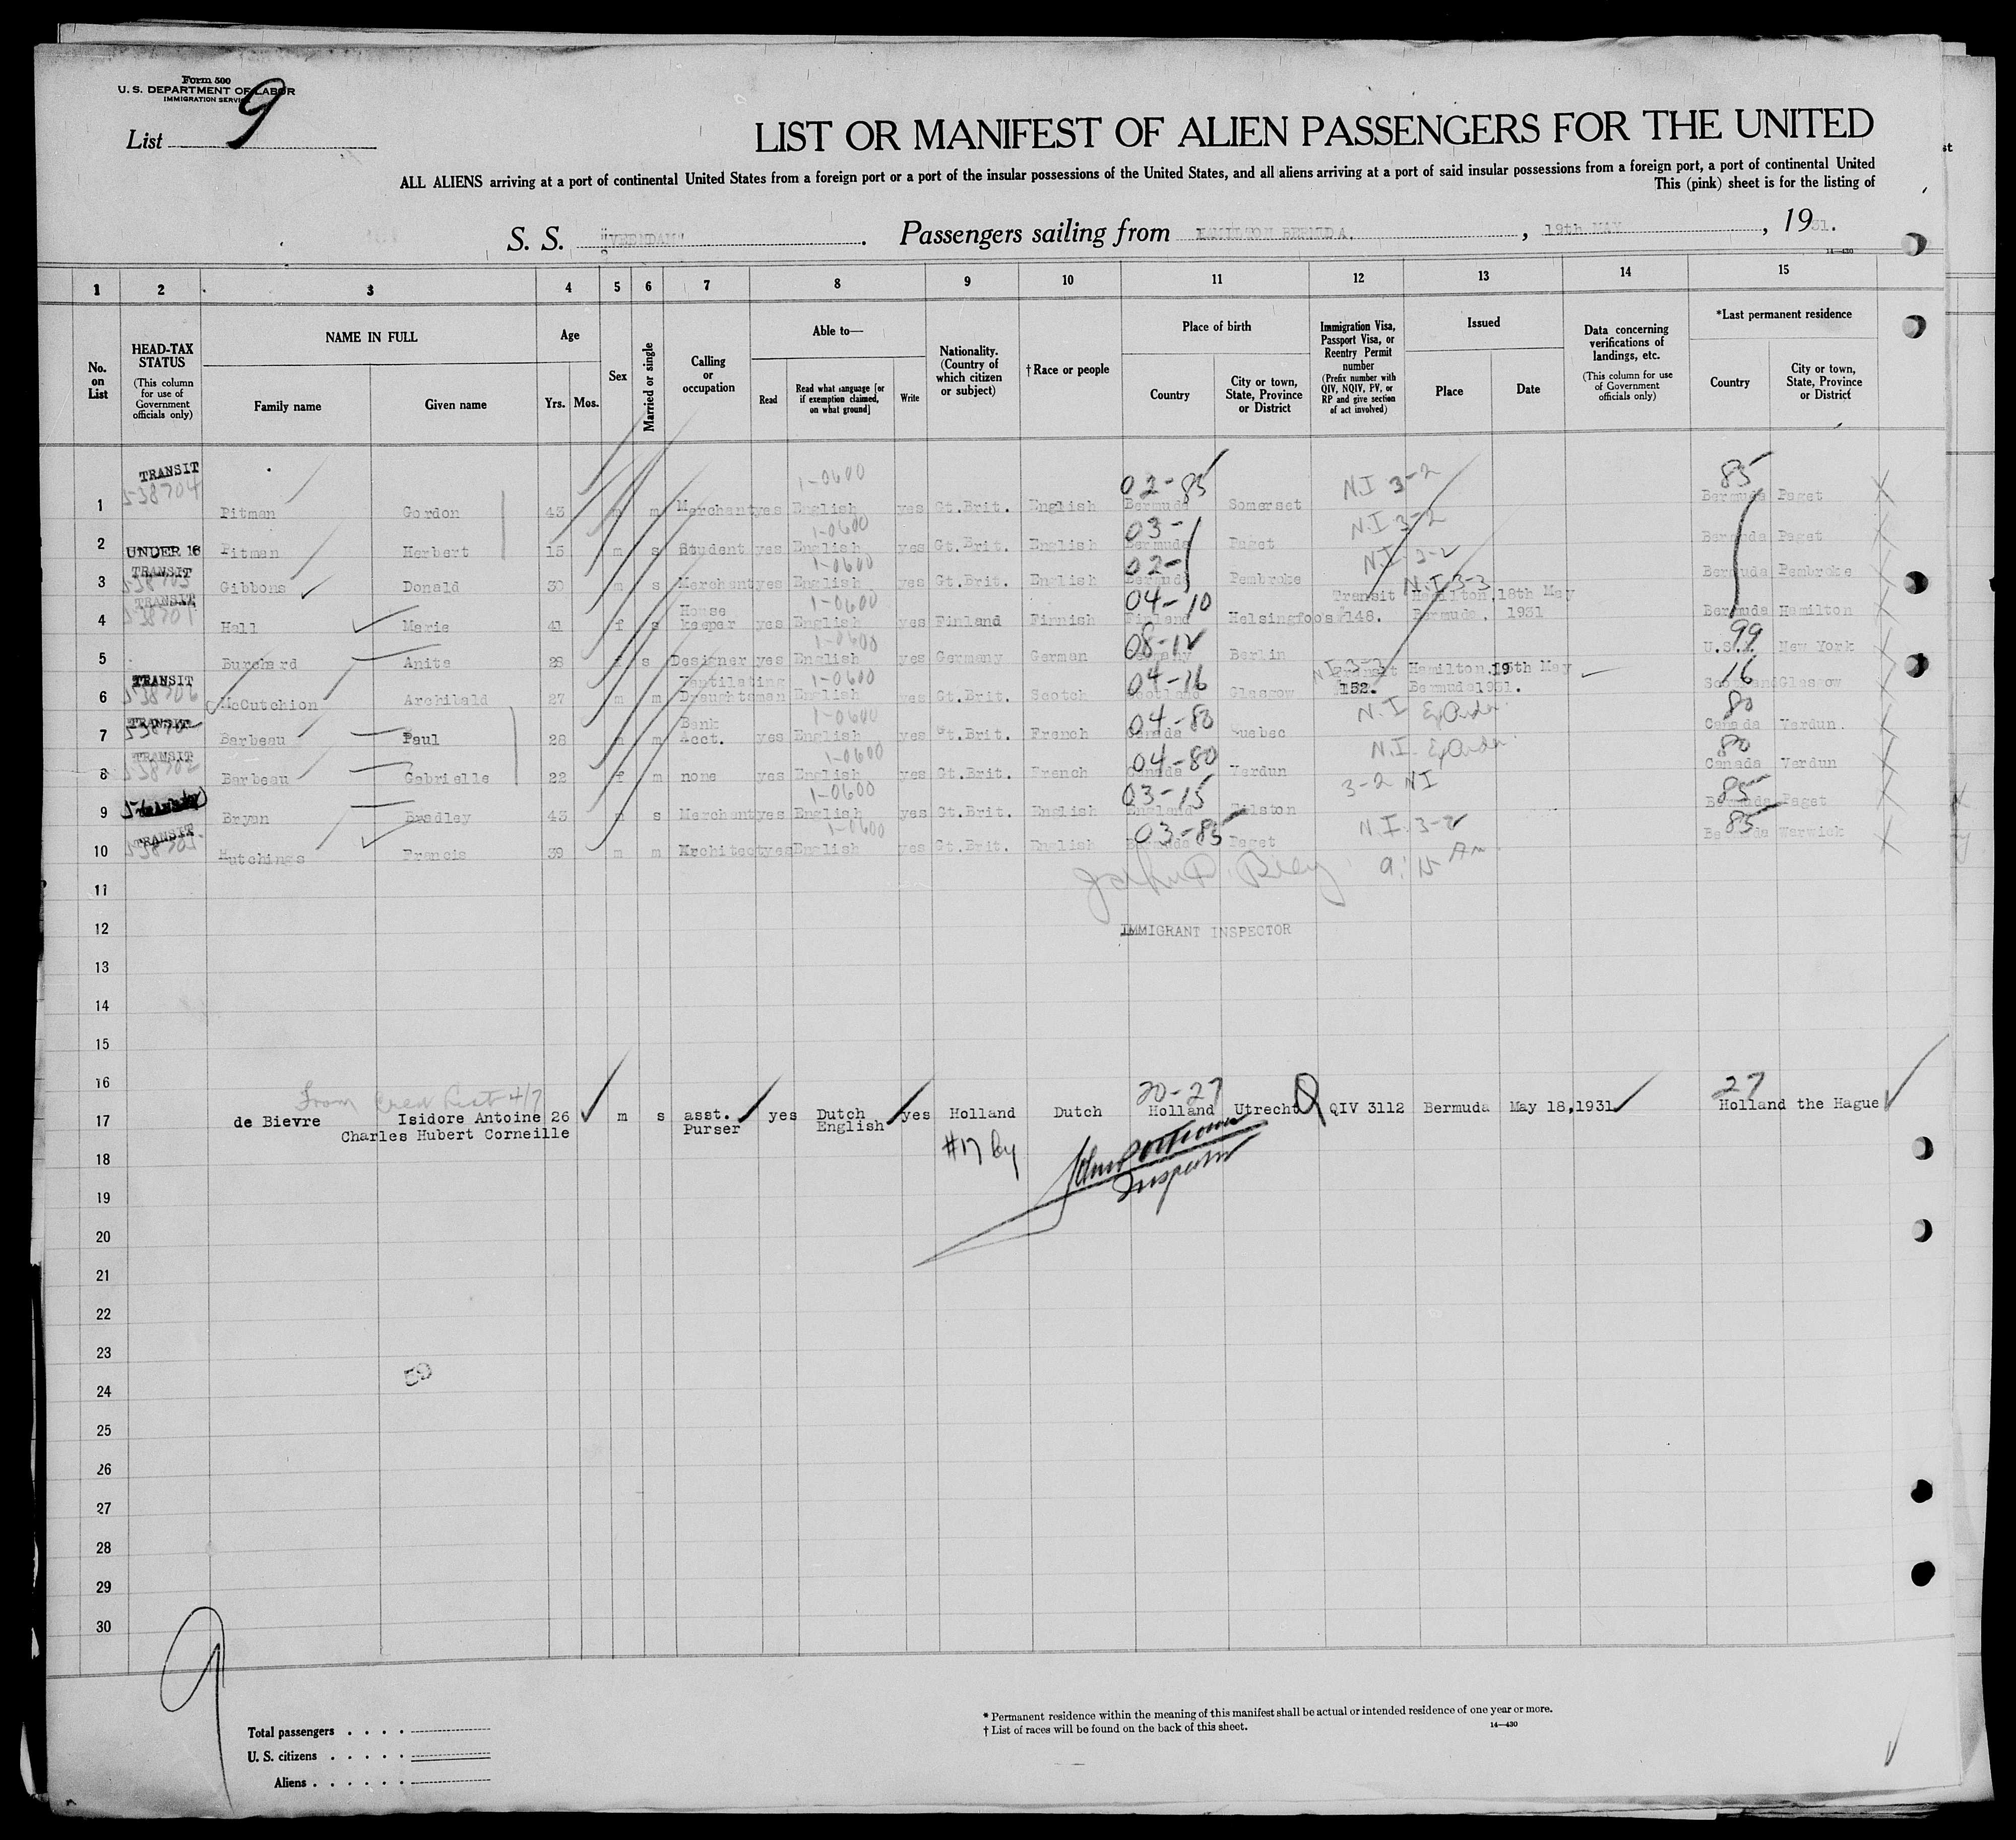 Form 500
U. S. DEPARTMENT OF LABOR
IMMIGRATION SERVICE
List 9
LIST OR MANIFEST OF ALIEN PASSENGERS FOR THE UNITED
ALL ALIENS arriving at a port of continental United States from a foreign port or a port of the insular possessions of the United States, and all aliens arriving at a port of said insular possessions from a foreign port, a port of continental United
This (pink) sheet is for the listing of
S. S. "VEENDAM". Passengers sailing from HAMILTON BERMUDA, 19th MAY, 1931.
14—430
1 2 3 4 5 6 7 8 9 10 11 12 13 14 15
No. on List
HEAD-TAX STATUS (This column for use of Government officials only)
NAME IN FULL Family name Given name
Age Yrs. Mos.
Sex
Married or single
Calling or occupation
Able to— Read Read what language [or if exemption claimed, on what ground] Write
Nationality. (Country of which citizen or subject)
† Race or people
Place of birth Country City or town, State, Province or District
Immigration Visa, Passport Visa, or Reentry Permit number (Prefix number with QIV, NQIV, PV, or RP and give section of act involved)
Issued Place Date
Data concerning verifications of landings, etc. (This column for use of Government officials only)
*Last permanent residence Country City or town, State, Province or District
TRANSIT 538704 1-0600 02-85 N.I 3-2 85
1 Pitman Gordon 43 m m Merchant yes English yes Gt.Brit. English Bermuda Somerset Bermuda Paget
1-0600 03- N.I 3-2
2 UNDER 16 Pitman Herbert 15 m s Student yes English yes Gt.Brit. English Bermuda Paget Bermuda Paget
TRANSIT 538703 1-0600 02- N.I 3-2
3 Gibbons Donald 30 m s Merchant yes English yes Gt.Brit. English Bermuda Pembroke Bermuda Pembroke
TRANSIT 538701 1-0600 04-10 N.I 3-3
4 Hall Marie 41 f s House keeper yes English yes Finland Finnish Finland Helsingfoors Transit #148. Hamilton, Bermuda. 18th May 1931 Bermuda Hamilton
1-0600 08-12 99
5 Burchard Anita 28 f s Designer yes English yes Germany German Germany Berlin U.S.A. New York
TRANSIT 538706 1-0600 04-16 N I 3-3 16
6 McCutchion Archibald 27 m m Ventilating Draughtsman English yes Gt.Brit. Scotch Scotland Glasgow Transit 152. Hamilton, Bermuda 19th May 1931. Scotland Glasgow
TRANSIT 1-0600 04-80 N.I 80
7 Barbeau Paul 28 m m Bank Acct. yes English yes Gt.Brit. French Canada Quebec Canada Verdun.
TRANSIT 538702 1-0600 04-80 N.I. 80
8 Barbeau Gabrielle 22 f m none yes English yes Gt.Brit. French Canada Verdun Canada Verdun
1-0600 03-15 3-2 NI 85
9 Bryan Bradley 43 s Merchant yes English yes Gt.Brit. English England Bermuda Paget
TRANSIT 538705 1-0600 03-85 N.I. 3-2 85
10 Hutchings Francis 39 m m Architect yes English yes Gt.Brit. English Bermuda Paget Bermuda Warwick
11 9:15 Am
12 IMMIGRANT INSPECTOR
13
14
15
16 From Crew List 4/7 20-27 27
17 de Bievre Isidore Antoine 26 m s asst. yes Dutch yes Holland Dutch Holland Utrecht QIV 3112 Bermuda May 18,1931 Holland the Hague
Charles Hubert Corneille Purser English
18 #17 by
19 Inspector
20
21
22
23
24
25
26
27
28
29
30
9
Total passengers . . . .
U. S. citizens . . . . .
Aliens . . . . . .
* Permanent residence within the meaning of this manifest shall be actual or intended residence of one year or more.
† List of races will be found on the back of this sheet.
14—430